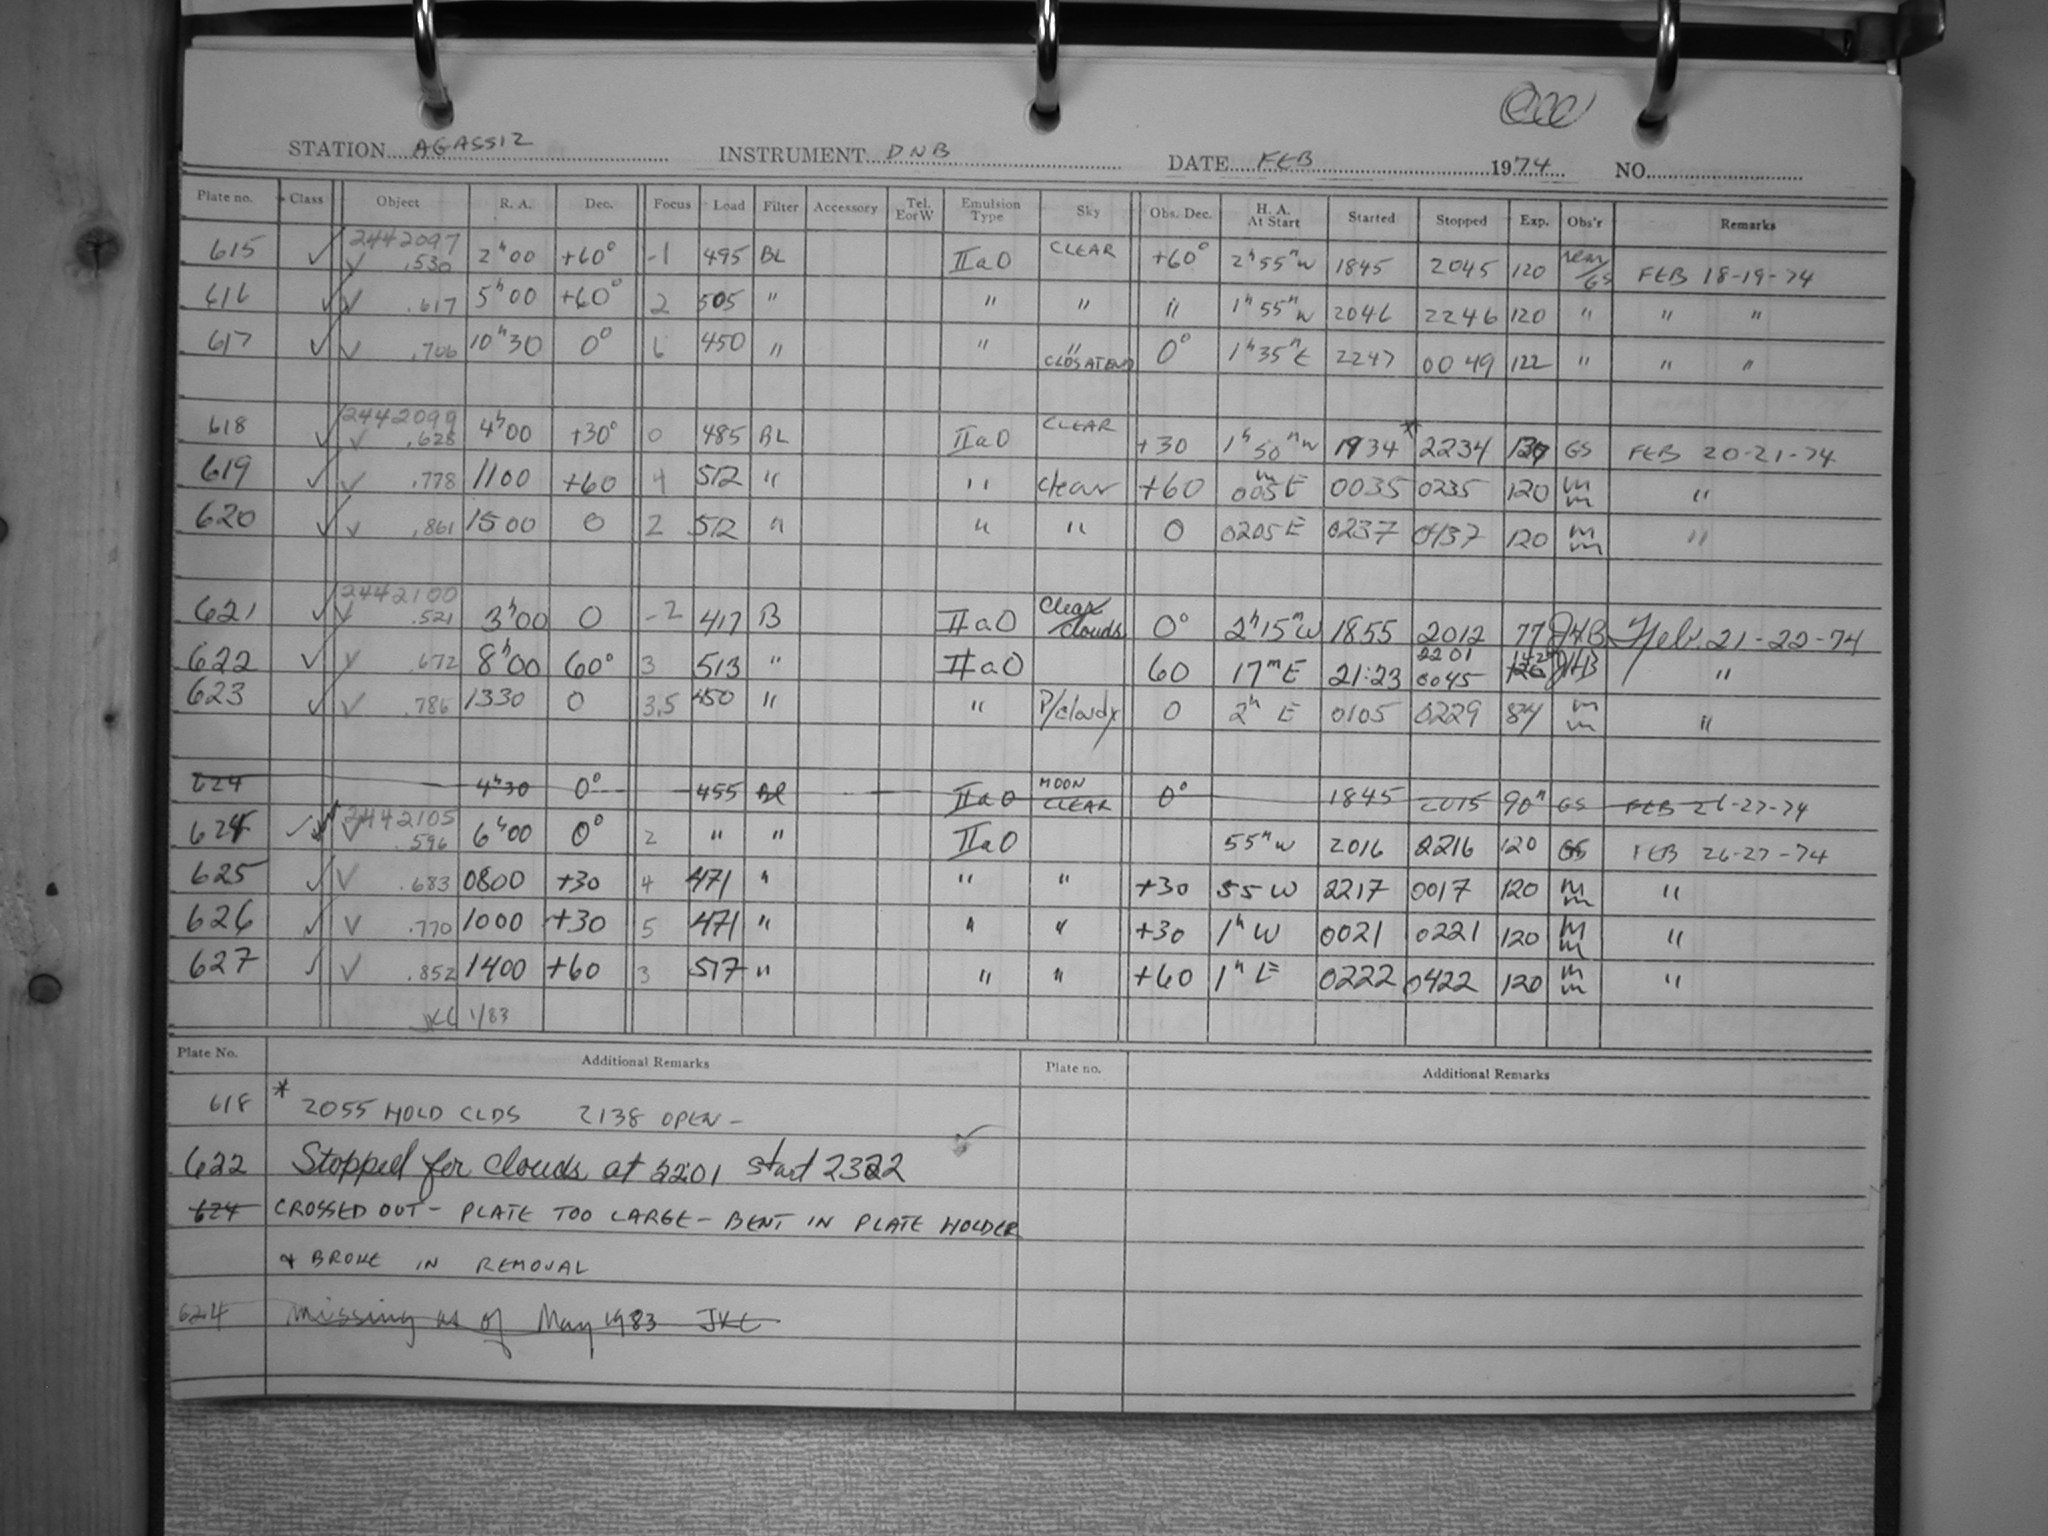 STATION AGASSIZ INSTRUMENT DNB DATE FEB 1974 NO.
Plate no. Class Object R. A. Dec. Focus Load Filter Accessory Tel. EorW Emulsion Type Sky Obs. Dec. H. A. At Start Started Stopped Exp. Obs'r Remarks
615 ✓ 2442097 ✓ .530 2h00 +60° -1 495 BL IIaO CLEAR +60° 2h55m W 1845 2045 120 /GS FEB 18-19-74
616 ✓ ✓ .617 5h00 +60° 2 505 " " " " 1h55m W 2046 2246 120 " " "
617 ✓ ✓ .706 10h30 0° 6 450 " " " CLDS AT END 0° 1h35m E 2247 0049 122 " " "
618 ✓ 2442099 ✓ .628 4h00 +30° 0 485 BL IIaO CLEAR +30 1h50m W 1934 * 2234 137 GS FEB 20-21-74
619 ✓ ✓ .778 1100 +60 4 512 " " clear +60 005m E 0035 0235 120 m m "
620 ✓ ✓ .861 1500 0 2 512 " " " 0 0205 E 0237 0437 120 m m "
621 ✓ 2442100 ✓ .521 3h00 0 -2 417 B IIaO Clear/clouds 0° 2h15m W 1855 2012 77 JHB Feb. 21-22-74
622 ✓ ✓ .672 8h00 60° 3 513 " IIaO 60 17m E 21:23 2201 0045 JHB "
623 ✓ ✓ .786 1330 0 3.5 450 " " P/cloudy 0 2h E 0105 0229 84 m m "
624 4h30 0° 455 BL IIaO MOON CLEAR 0° 1845 2015 90m GS FEB 26-27-74
624 ✓ 2442105 ✓ .596 6h00 0° 2 " " IIaO 55m W 2016 2216 120 GS FEB 26-27-74
625 ✓ ✓ .683 0800 +30 4 471 " " " +30 55 W 2217 0017 120 m m "
626 ✓ ✓ .770 1000 +30 5 471 " " " +30 1h W 0021 0221 120 m m "
627 ✓ ✓ .852 1400 +60 3 517 " " " +60 1h E 0222 0422 120 m m "
JKC 1/83
Plate No. Additional Remarks Plate no. Additional Remarks
618 * 2055 HOLD CLDS 2138 OPEN –
622 Stopped for clouds at 2201 start 2322 ✓
624 CROSSED OUT – PLATE TOO LARGE – BENT IN PLATE HOLDER
& BROKE IN REMOVAL
624 missing as of May 1983 JKC